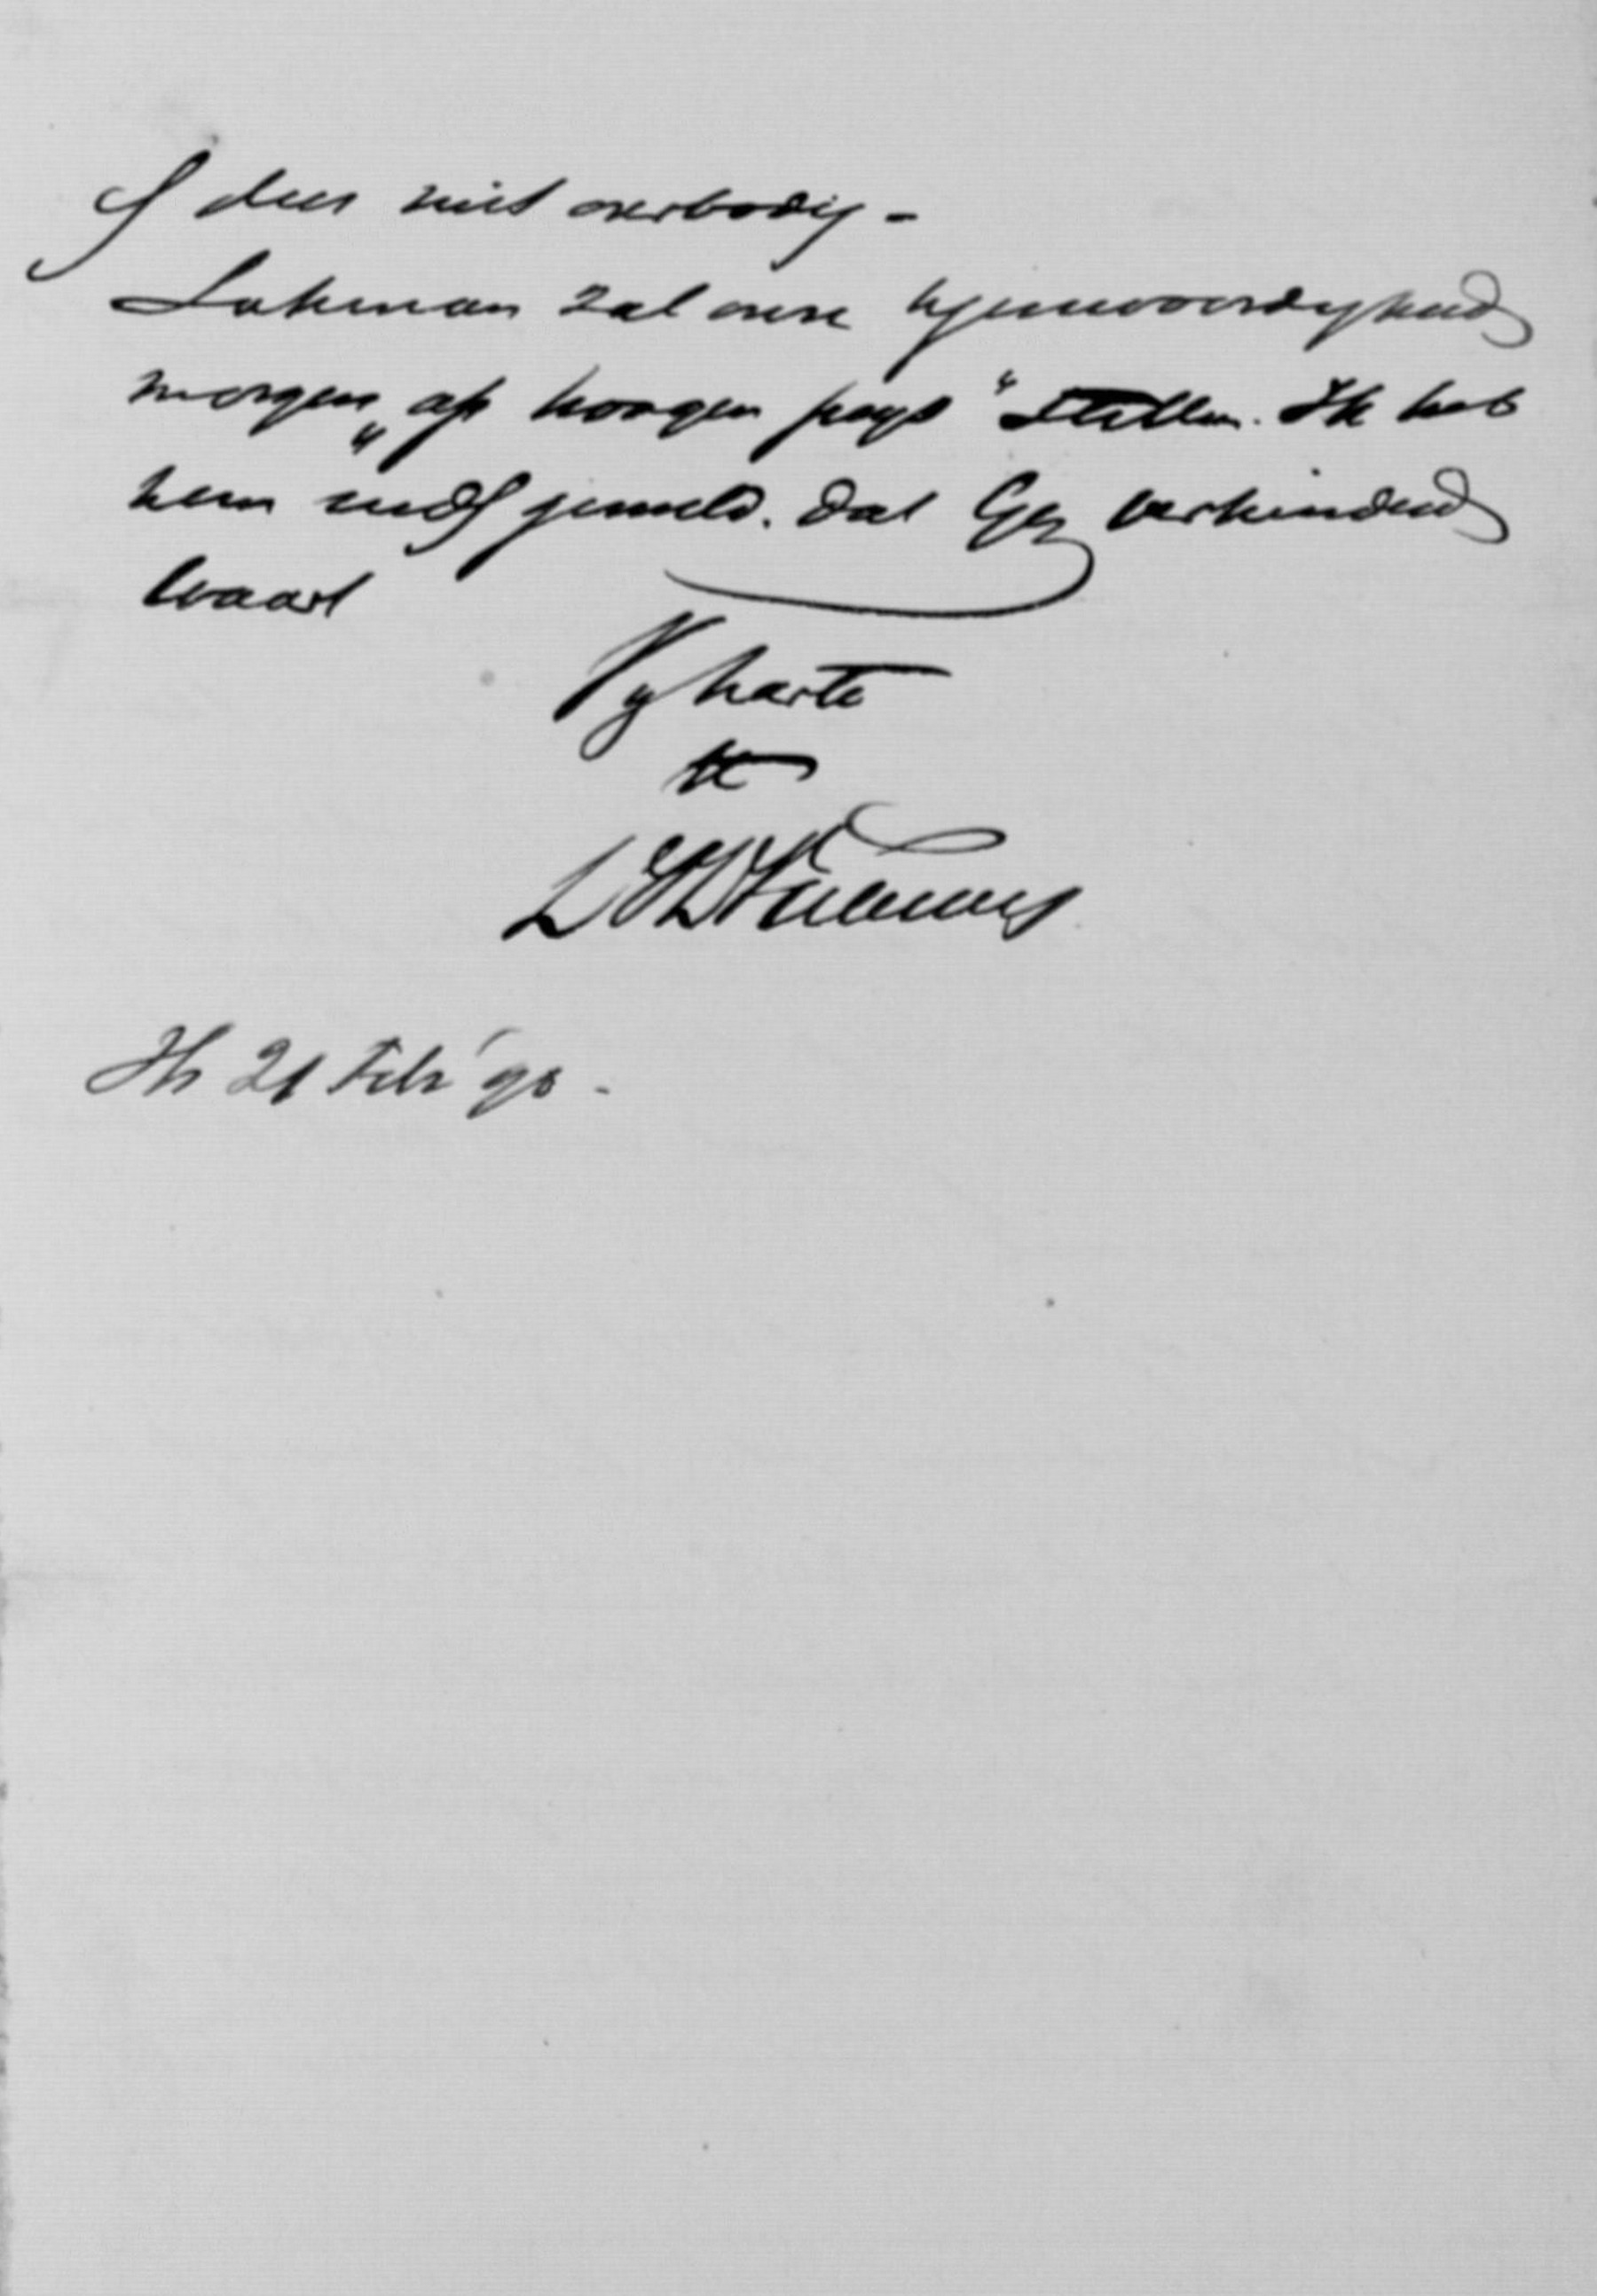 is dus niet overbodig –
Lohman zal onze tegenwoordigheid
morgen „op hoogen prijs" stellen. Ik heb
hem reeds gemeld. dat Gij verhinderd
waart
Vg harte
tt
Hs 21 Feb '90 –